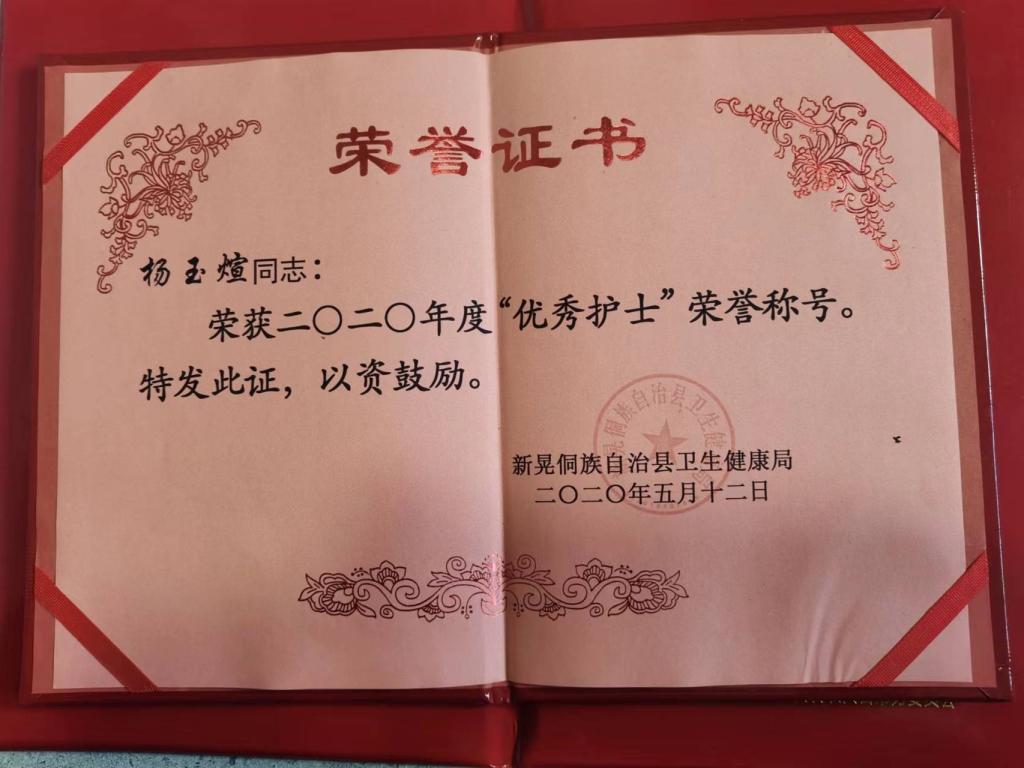 荣誉证书
杨玉煊同志：
荣获二〇二〇年度“优秀护士”荣誉称号。
特发此证，以资鼓励。
新晃侗族自治县卫生健康局
二〇二〇年五月十二日
晃侗族自治县卫生健